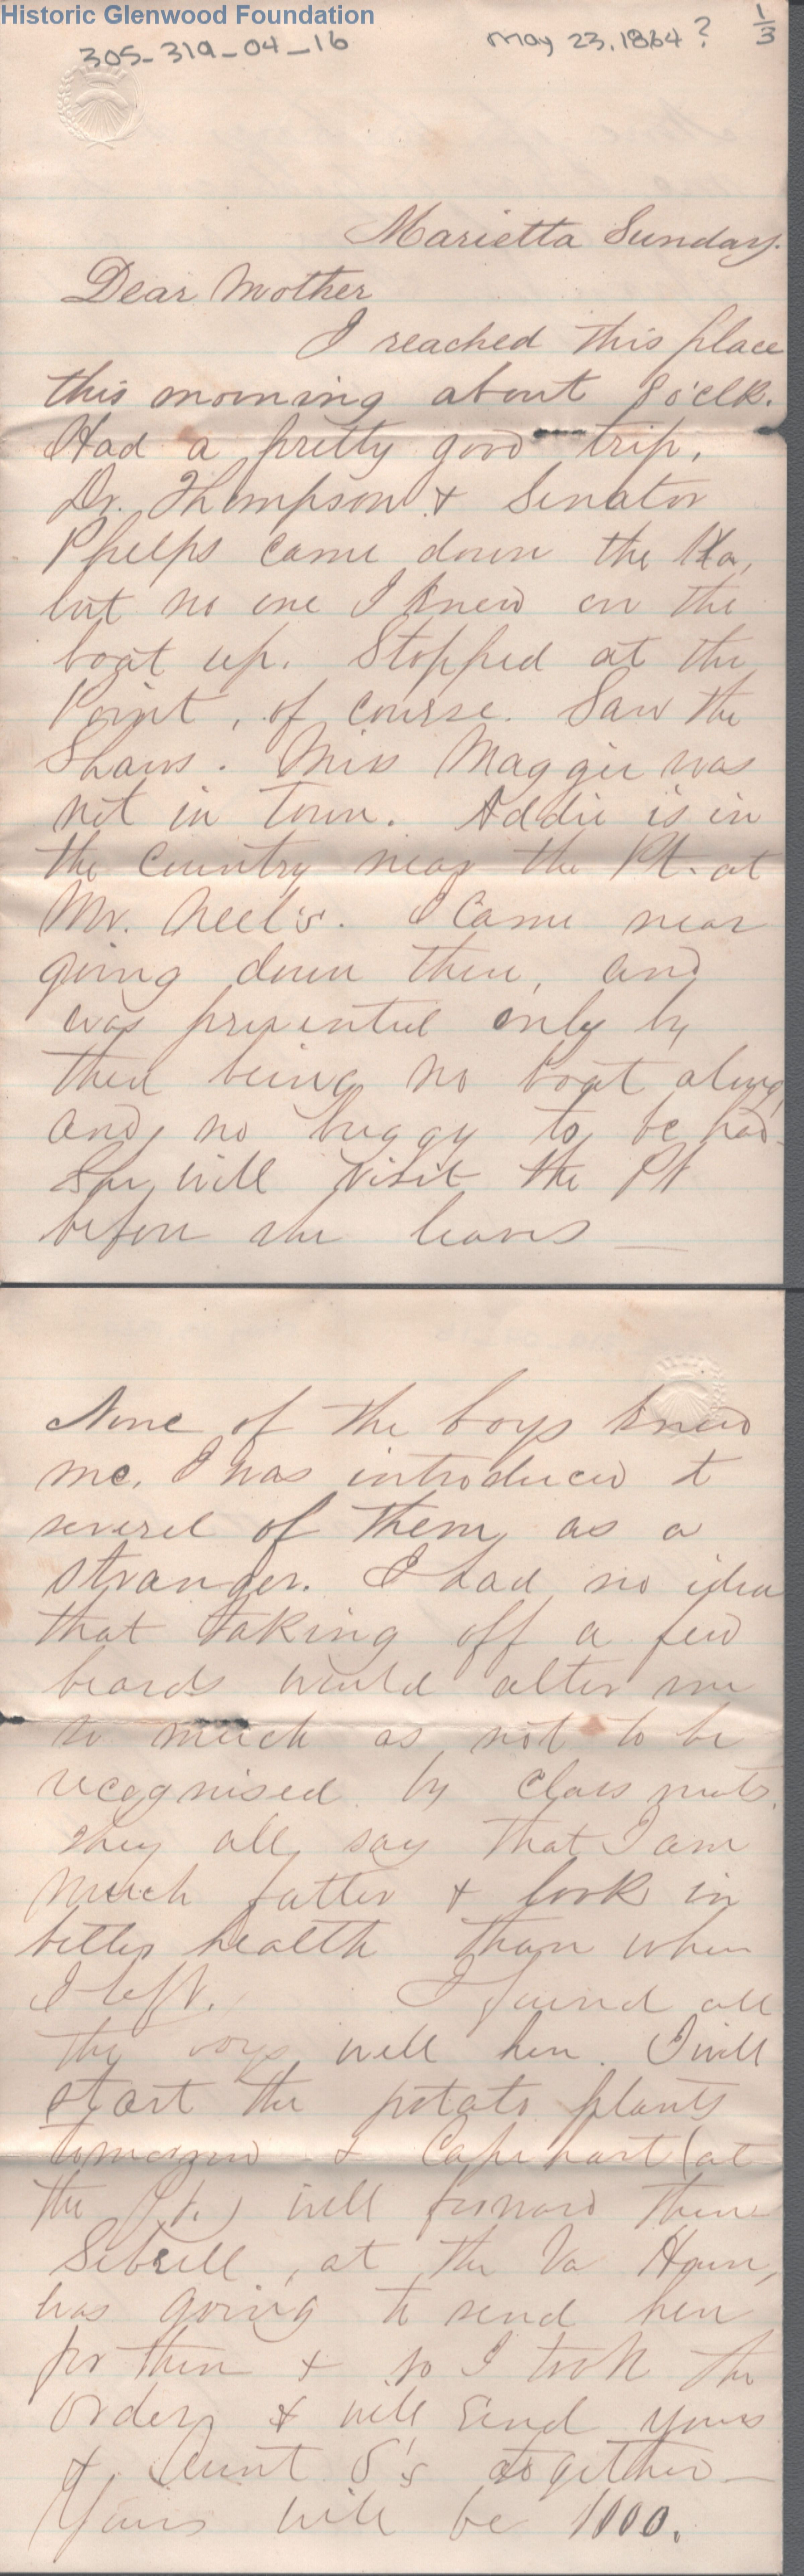 Historic Glenwood Foundation
305-319-04-16
May 23, 1864?
1/3
Marietta Sunday.
Dear Mother
I reached this place
this morning about 8 o'clk.
Had a pretty good trip.
Dr. Thompson & Senator
Phelps came down the Ka,
but no one I knew on the
boat up. Stopped at the
Point, of course. Saw the
Shaws. Miss Maggie was
not in town. Addie is in
the Country near the Pt. at
Mr. Neel's. I came near
going down there, and
was prevented only by
there being no boat along
and no buggy to be had.
She will visit the Pt
before she leaves —
None of the boys knew
me. I was introduced t
several of them as a
stranger. I had no idea
that taking off a few
beards would alter me
so much as not to be
recognised by Class mates.
They all say that I am
much fatter & look in
better health than when
I left. I found all
the boys well here. I will
start the potato plants
tomorrow & Capehart (at
the Pt.) will forward them
Sebrell, at the Va House,
was going to send here
for them & so I took the
order & will send yours
& Aunt S's together —
Yours will be 1000.